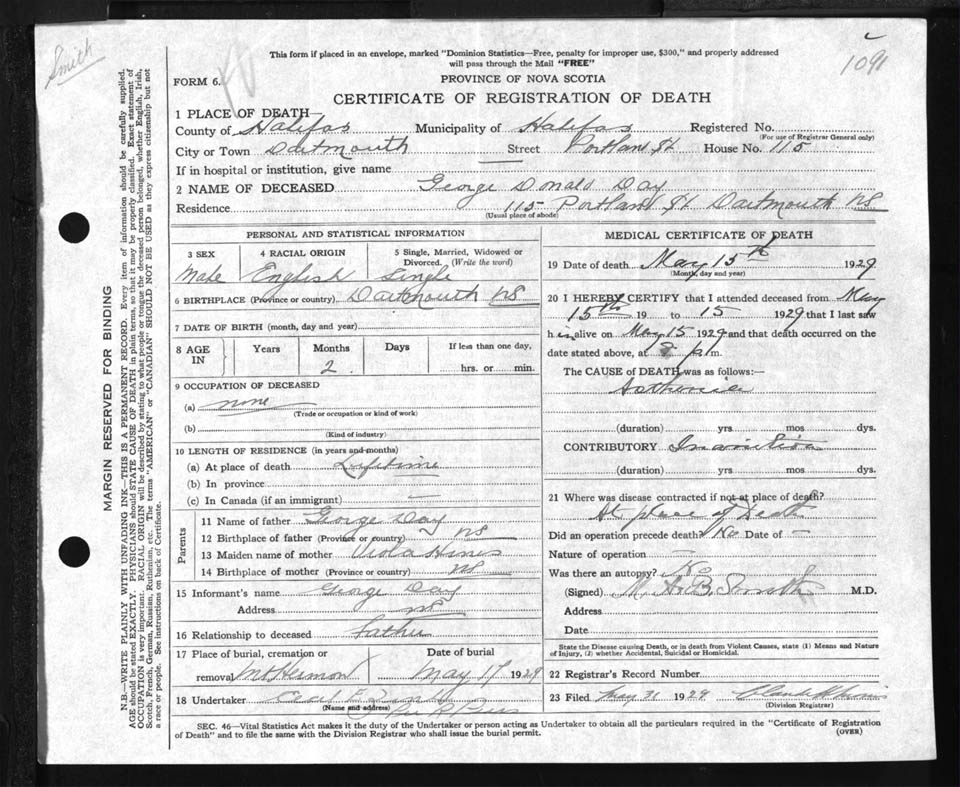 Smith
1091
This form if placed in an envelope, marked "Dominion Statistics—Free, penalty for improper use, $300," and properly addressed
will pass through the Mail "FREE"
FORM 6.
PROVINCE OF NOVA SCOTIA
CERTIFICATE OF REGISTRATION OF DEATH
1 PLACE OF DEATH
County of Halifax Municipality of Halifax Registered No.
(For use of Registrar General only)
City or Town Dartmouth Street Portland St House No. 115
If in hospital or institution, give name —
2 NAME OF DECEASED George Donald Day
Residence 115 Portland St Dartmouth NS
(Usual place of abode)
PERSONAL AND STATISTICAL INFORMATION
3 SEX 4 RACIAL ORIGIN 5 Single, Married, Widowed or
Divorced. (Write the word)
Male English Single
6 BIRTHPLACE (Province or country) Dartmouth NS
7 DATE OF BIRTH (month, day and year)
8 AGE IN Years Months Days If less than one day,
2 hrs. or min.
9 OCCUPATION OF DECEASED
(a) none
(Trade or occupation or kind of work)
(b)
(Kind of industry)
10 LENGTH OF RESIDENCE (in years and months)
(a) At place of death Lifetime
(b) In province
(c) In Canada (if an immigrant) —
Parents
11 Name of father George Day
12 Birthplace of father (Province or country) NS
13 Maiden name of mother Viola Hines
14 Birthplace of mother (Province or country) NS
15 Informant's name George Day
Address NS
16 Relationship to deceased Father
17 Place of burial, cremation or Date of burial
removal Mt Hermon May 17 1929
18 Undertaker Cecil E
(Name and address)
MEDICAL CERTIFICATE OF DEATH
19 Date of death May 15th 1929
(Month, day and year)
20 I HEREBY CERTIFY that I attended deceased from May
15th 19 to 15 1929 that I last saw
him alive on May 15 1929 and that death occurred on
date stated above, at 8 p.m.
The CAUSE of DEATH was as follows:—
Asthenia
(duration) yrs mos dys.
CONTRIBUTORY Inanition
(duration) yrs mos dys.
21 Where was disease contracted if not at place of death?
At place of Death
Did an operation precede death? No Date of —
Nature of operation —
Was there an autopsy? No
(Signed) M. A. B. Smith M.D.
Address
Date
State the Disease causing Death, or in death from Violent Causes, state (1) Means and Nature
of Injury, (2) whether Accidental, Suicidal or Homicidal.
22 Registrar's Record Number
23 Filed May 31 1929
(Division Registrar)
SEC. 46—Vital Statistics Act makes it the duty of the Undertaker or person acting as Undertaker to obtain all the particulars required in the "Certificate of Registration
of Death" and to file the same with the Division Registrar who shall issue the burial permit.
(OVER)
MARGIN RESERVED FOR BINDING
N.B.—WRITE PLAINLY WITH UNFADING INK—THIS IS A PERMANENT RECORD. Every item of information should be carefully supplied.
AGE should be stated EXACTLY. PHYSICIANS should STATE CAUSE OF DEATH in plain terms, so that it may be properly classified. Exact statement of
OCCUPATION is very important. RACIAL ORIGIN will be described by stating to what people or tongue the deceased person belonged, whether English, Irish,
Scotch, French, German, Russian, Ruthenian, etc. The terms "AMERICAN" or "CANADIAN" SHOULD NOT BE USED as they express citizenship but not
a race or people. See instructions on back of Certificate.